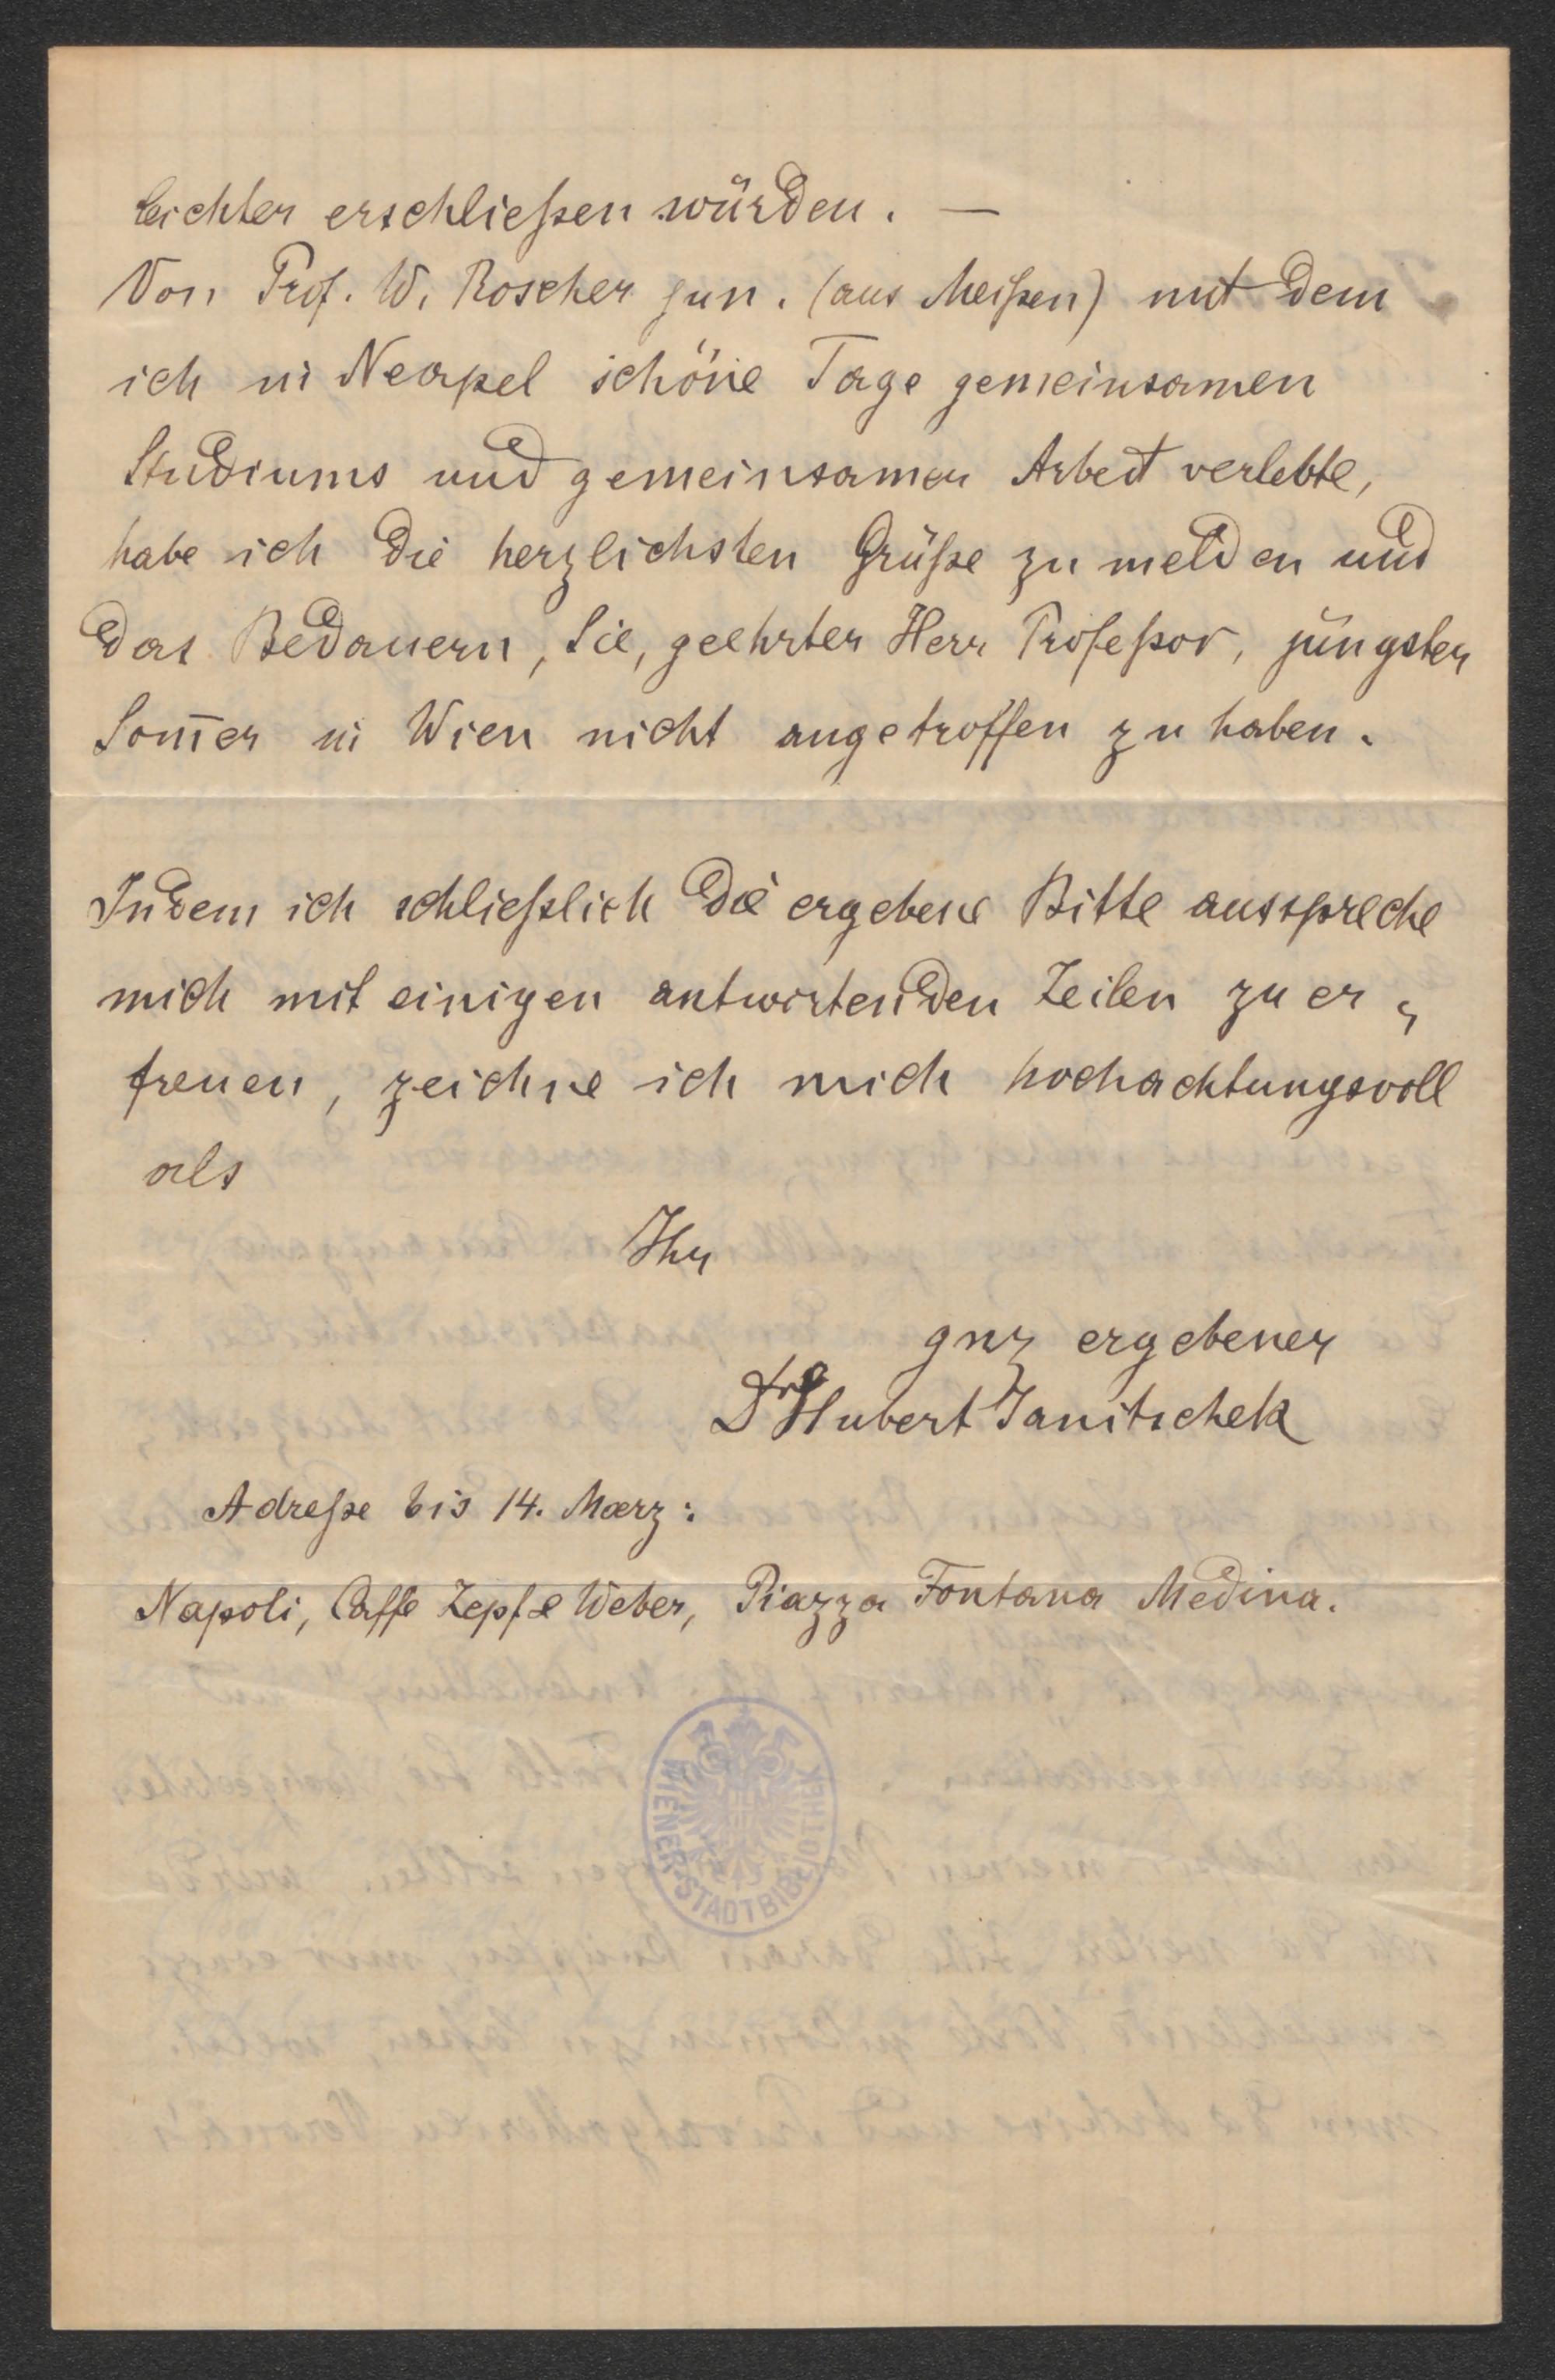 leichter erschließen würden. —
Von Prof. W. Roscher jun. (aus Meißen) mit dem
ich in Neapel schöne Tage gemeinsamen
Studiums und gemeinsamer Arbeit verlebte,
habe ich die herzlichsten Grüße zu melden und
das Bedauern, Sie, geehrter Herr Profeßor, jüngsten
Som̄er in Wien nicht angetroffen zu haben.
Indem ich schließlich die ergebene Bitte ausspreche
mich mit einigen antwortenden Zeilen zu er„
freuen, zeichne ich mich hochachtungsvoll
als
Ihr
gnz ergebener
Dr Hubert Janitschek
Adreße bis 14. Maerz:
Napoli, Caffe Zepf e Weber, Piazza Fontana Medina.
WIENER STADTBIBLIOTHEK